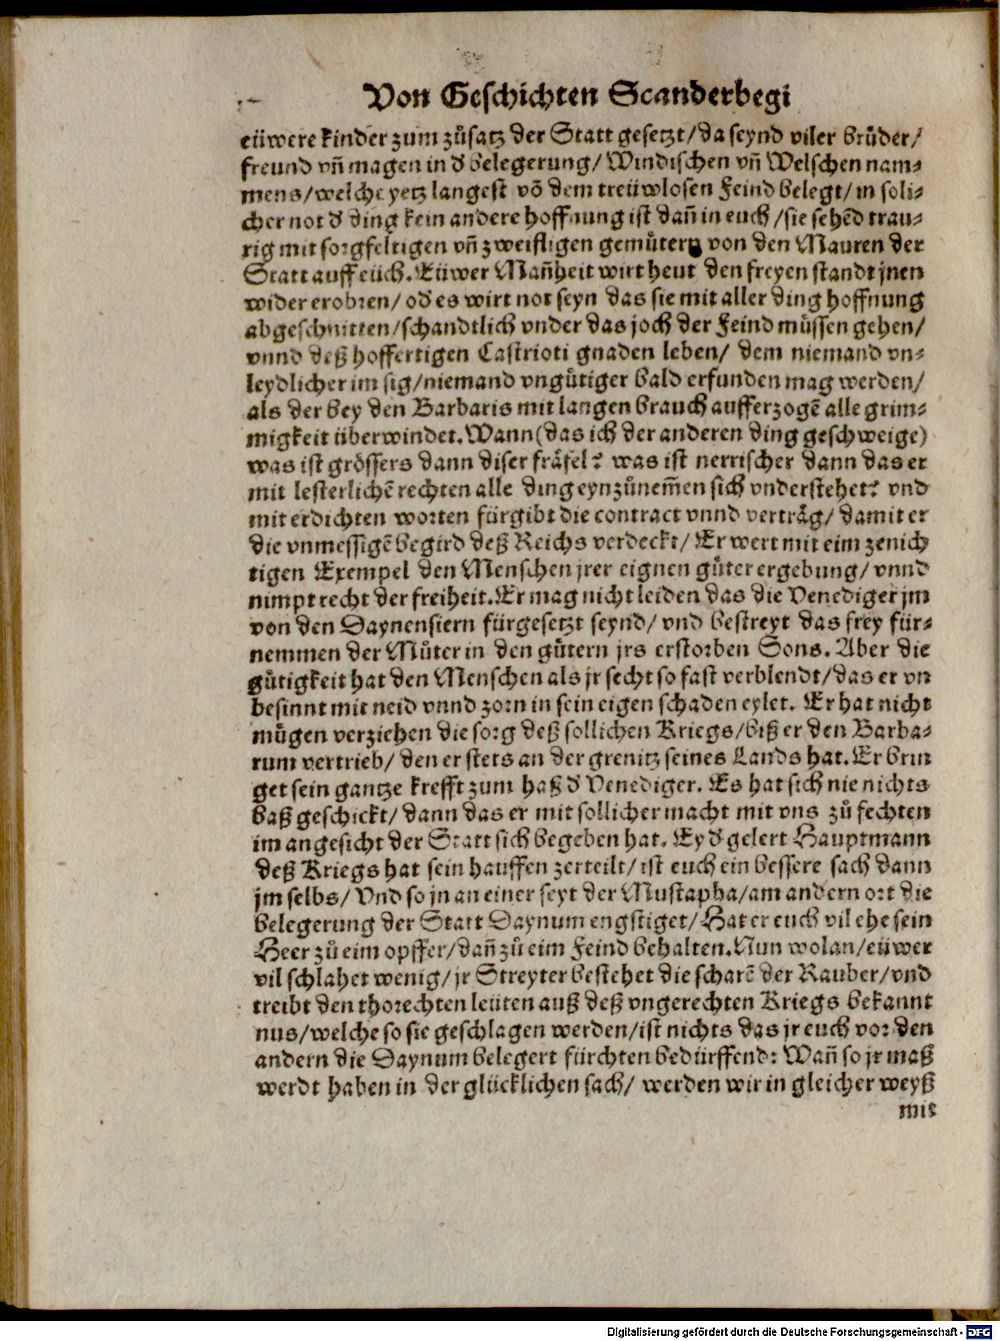 Von Geschichten Scanderbegi
eüwere kinder zum zůsatz der Statt gesetzt/ da seynd viler brůder/
freund vñ magen in d̕ belegerung/ Windischen vñ Welschen nam-
mens/ welche yetz langest võ dem treüwlosen Feind belegt/ in soli-
cher not d̕ ding kein andere hoffnung ist dañ in euch/ sie sehẽd trau-
rig mit sorgfeltigen vñ zweifligen gemůtern von den Mauren der
Statt auff eüch. Eüwer Mañheit wirt heut den freyen standt jnen
wider erobren/ od̕ es wirt not seyn das sie mit aller ding hoffnung
abgeschnitten/ schandtlich vnder das joch der Feind müssen gehen/
vnnd deß hoffertigen Castrioti gnaden leben/ dem niemand vn-
leydlicher im sig/ niemand vngůtiger bald erfunden mag werden/
als der bey den Barbaris mit langen brauch aufferzogẽ alle grim-
migkeit überwindet. Wann (das ich der anderen ding geschweige)
was ist grössers dann diser fräfel? was ist nerrischer dann das er
mit lesterlichẽ rechten alle ding eynzůnem̃en sich vnderstehet? vnd
mit erdichten worten fürgibt die contract vnnd verträg/ damit er
die vnmessigẽ begird deß Reichs verdeckt/ Er wert mit eim zenich
tigen Exempel den Menschen jrer eignen gůter ergebung/ vnnd
nimpt recht der freiheit. Er mag nicht leiden das die Venediger jm
von den Daynensiern fürgesetzt seynd/ vnd bestreyt das frey für-
nemmen der Můter in den gůtern jrs erstorben Sons. Aber die
gůtigkeit hat den Menschen als jr secht so fast verblendt/ das er vn
besinnt mit neid vnnd zorn in sein eigen schaden eylet. Er hat nicht
mügen verziehen die sorg deß sollichen Kriegs/ biß er den Barba-
rum vertrieb/ den er stets an der grenitz seines Lands hat. Er brin
get sein gantze krefft zum haß d̕ Venediger. Es hat sich nie nichts
baß geschickt/ dann das er mit sollicher macht mit vns zů fechten
im angesicht der Statt sich begeben hat. Ey d̕ gelert Hauptmann
deß Kriegs hat sein hauffen zerteilt/ ist euch ein bessere sach dann
jm selbs/ Vnd so jn an einer seyt der Mustapha/ am andern ort die
belegerung der Statt Daynum engstiget/ Hat er euch vil ehe sein
Heer zů eim opffer/ dañ zů eim Feind behalten. Nun wolan/ eüwer
vil schlahet wenig/ jr Streyter bestehet die scharẽ der Rauber/ vnd
treibt den thorechten leüten auß deß vngerechten Kriegs bekannt
nus/ welche so sie geschlagen werden/ ist nichts das jr euch vor den
andern die Daynum belegert fürchten bedürffend: Wañ so jr maß
werdt haben in der glücklichen sach/ werden wir in gleicher weyß
mit
Digitalisierung gefördert durch die Deutsche Forschungsgemeinschaft - DFG